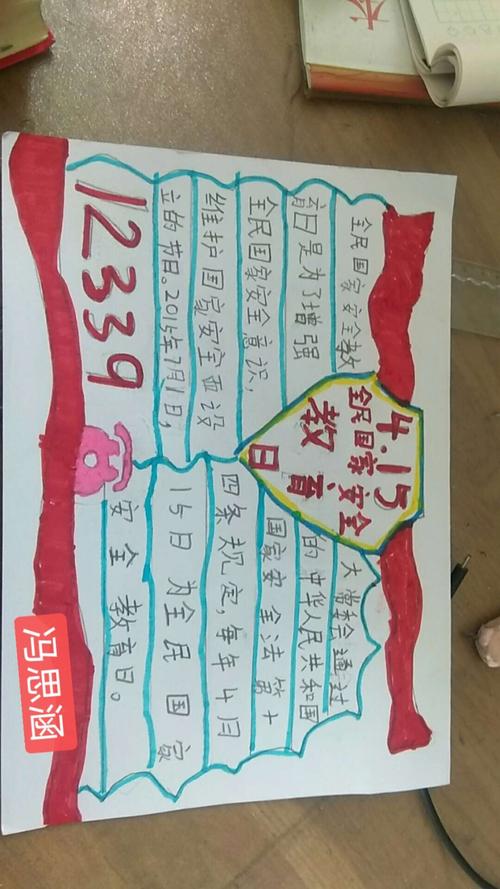 4.15
全民国家安全
教育
日
全民国家安全教
育日是为了增强
全民国家安全意识，
维护国家安全而设
立的节日。2015年7月1日，
12339
大常务通过
的中华人民共和国
国家安全法第十
四条规定，每年4月
15日为全民国家
安全教育日。
冯思涵